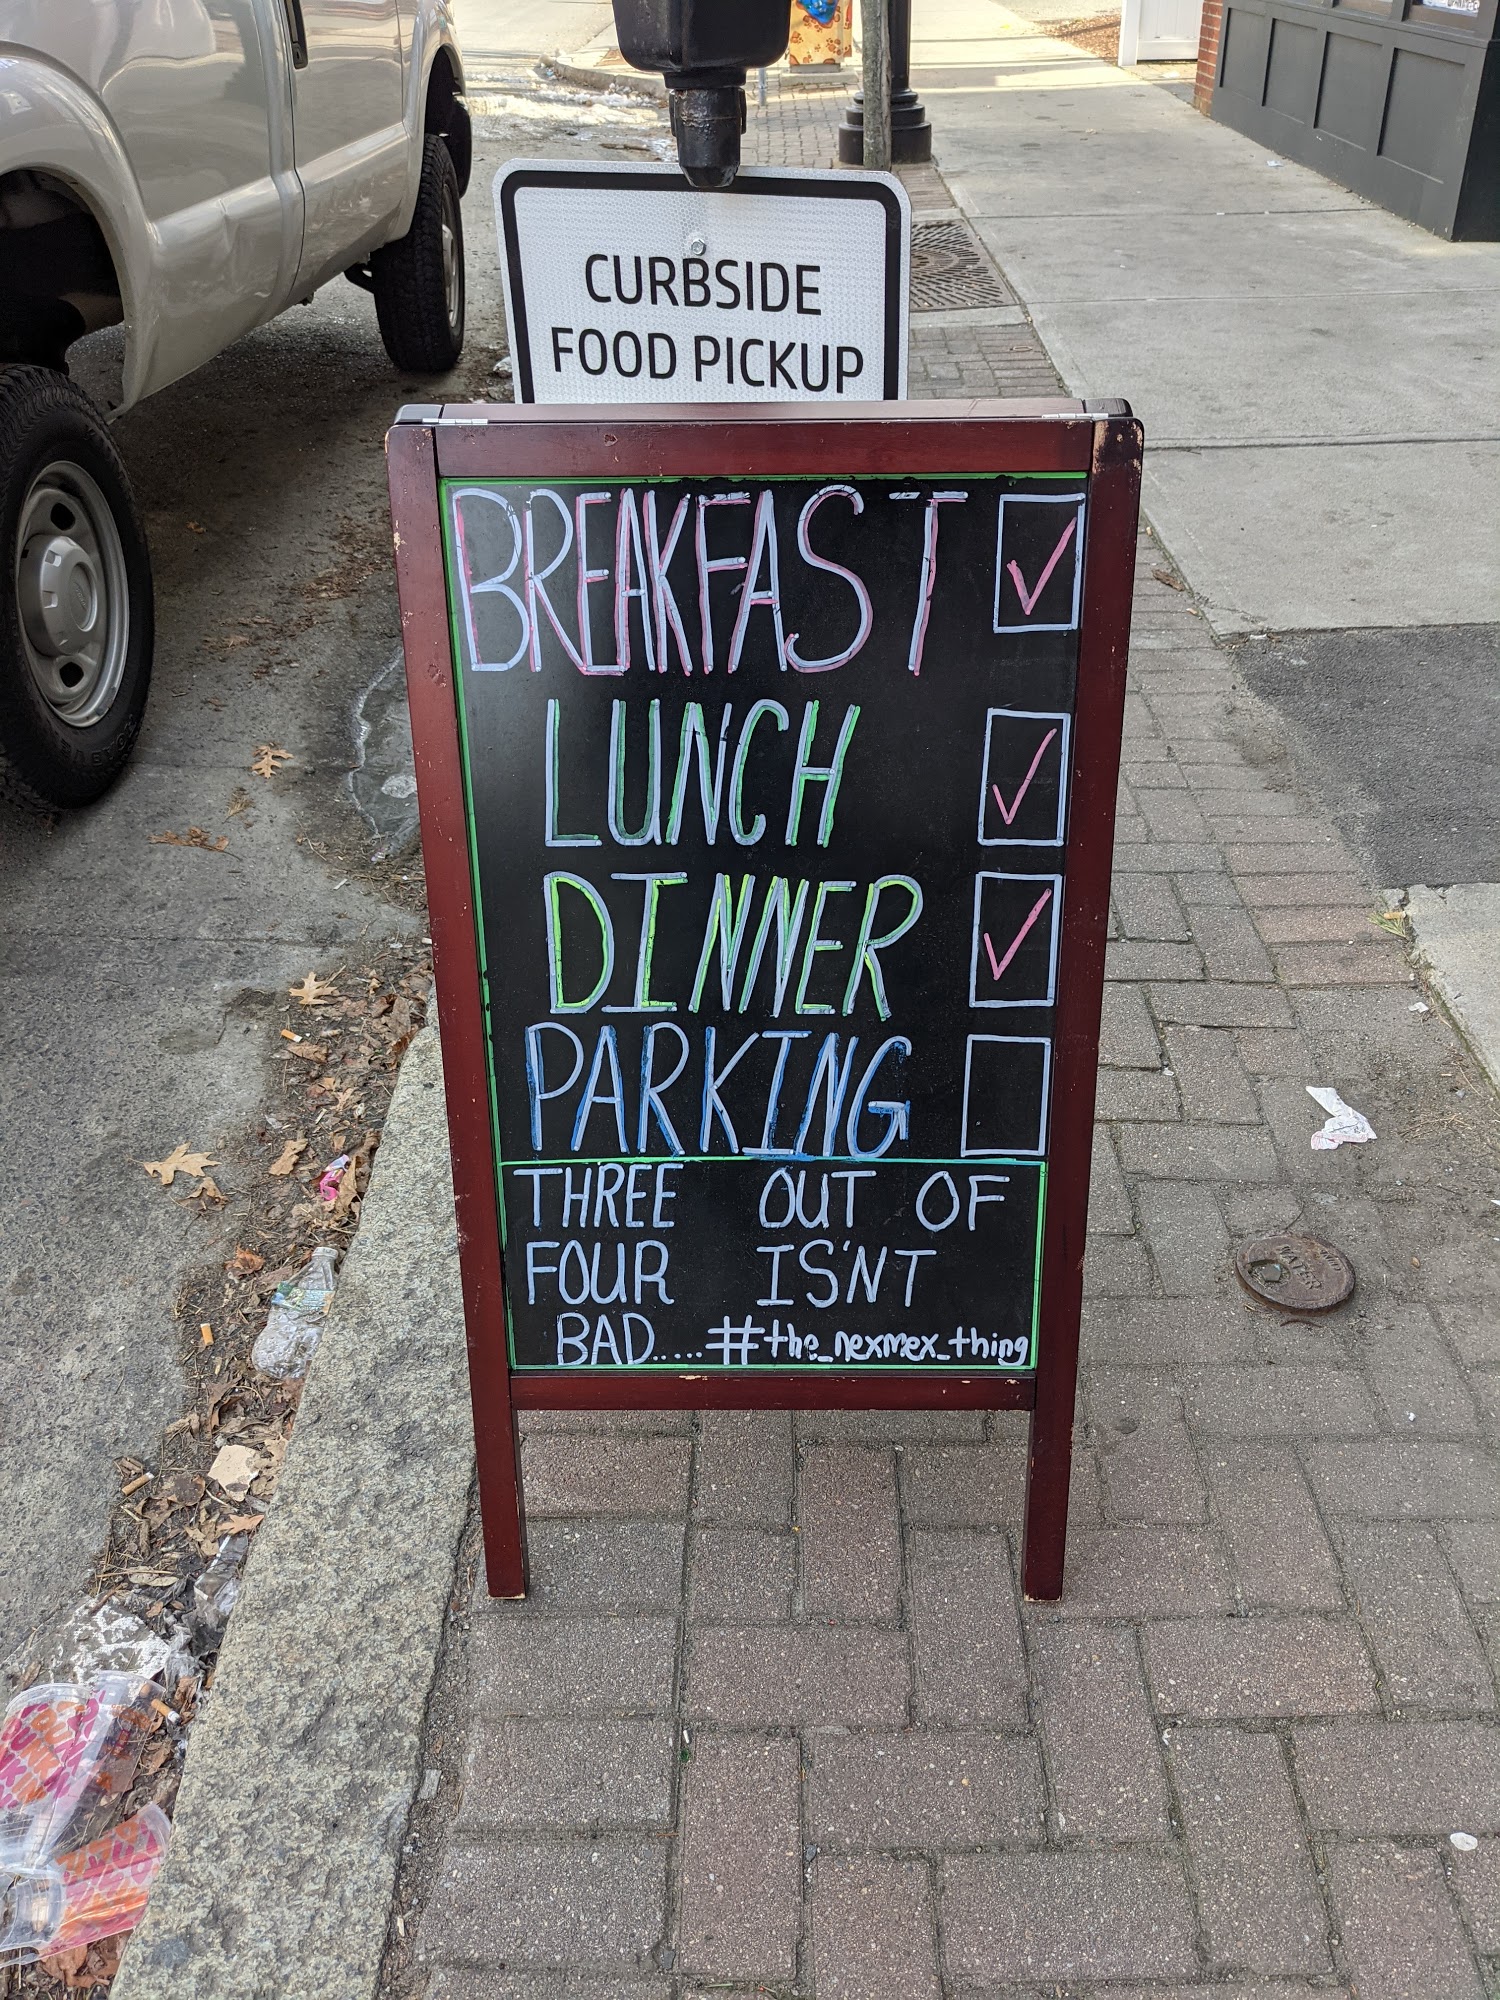 CURBSIDE
FOOD PICKUP
BREAKFAST ✓
LUNCH ✓
DINNER ✓
PARKING
THREE OUT OF
FOUR IS'NT
BAD.....#the_nexmex_thing
WATER